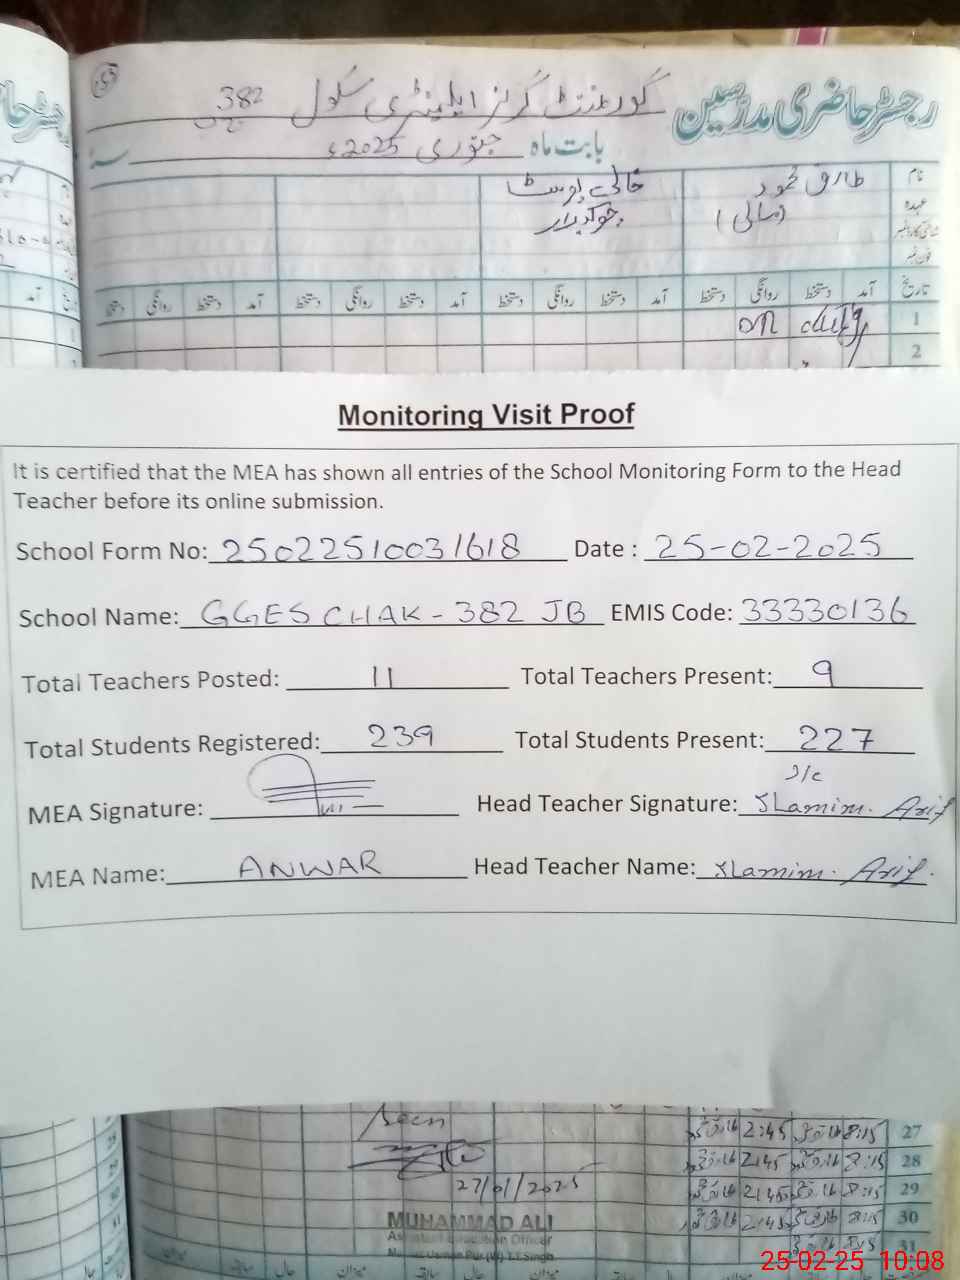 رجسٹر حاضری مدرسین
گورنمنٹ گرلز ایلیمنٹری سکول 382
بابت ماہ جنوری 2025ء
نام طارق محمود خالی پوسٹ
عہدہ (مالی) چوکیدار
تاریخ آمد دستخط روانگی دستخط آمد دستخط روانگی دستخط آمد دستخط روانگی دستخط آمد دستخط روانگی دستخط
1 on duty
2
Monitoring Visit Proof
It is certified that the MEA has shown all entries of the School Monitoring Form to the Head
Teacher before its online submission.
School Form No: 25022510031618 Date : 25-02-2025
School Name: GGES CHAK - 382 JB EMIS Code: 33330136
Total Teachers Posted: 11 Total Teachers Present: 9
Total Students Registered: 239 Total Students Present: 227
I/c
MEA Signature: Head Teacher Signature: Arif
MEA Name: ANWAR Head Teacher Name: Arif.
Seen
27/01/2025
MUHAMMAD ALI
Assistant Education Officer
27 8:15 2:45
28 8:15 2:45
29 8:15 2:45
30 8:15 2:45
31
25-02-25 10:08